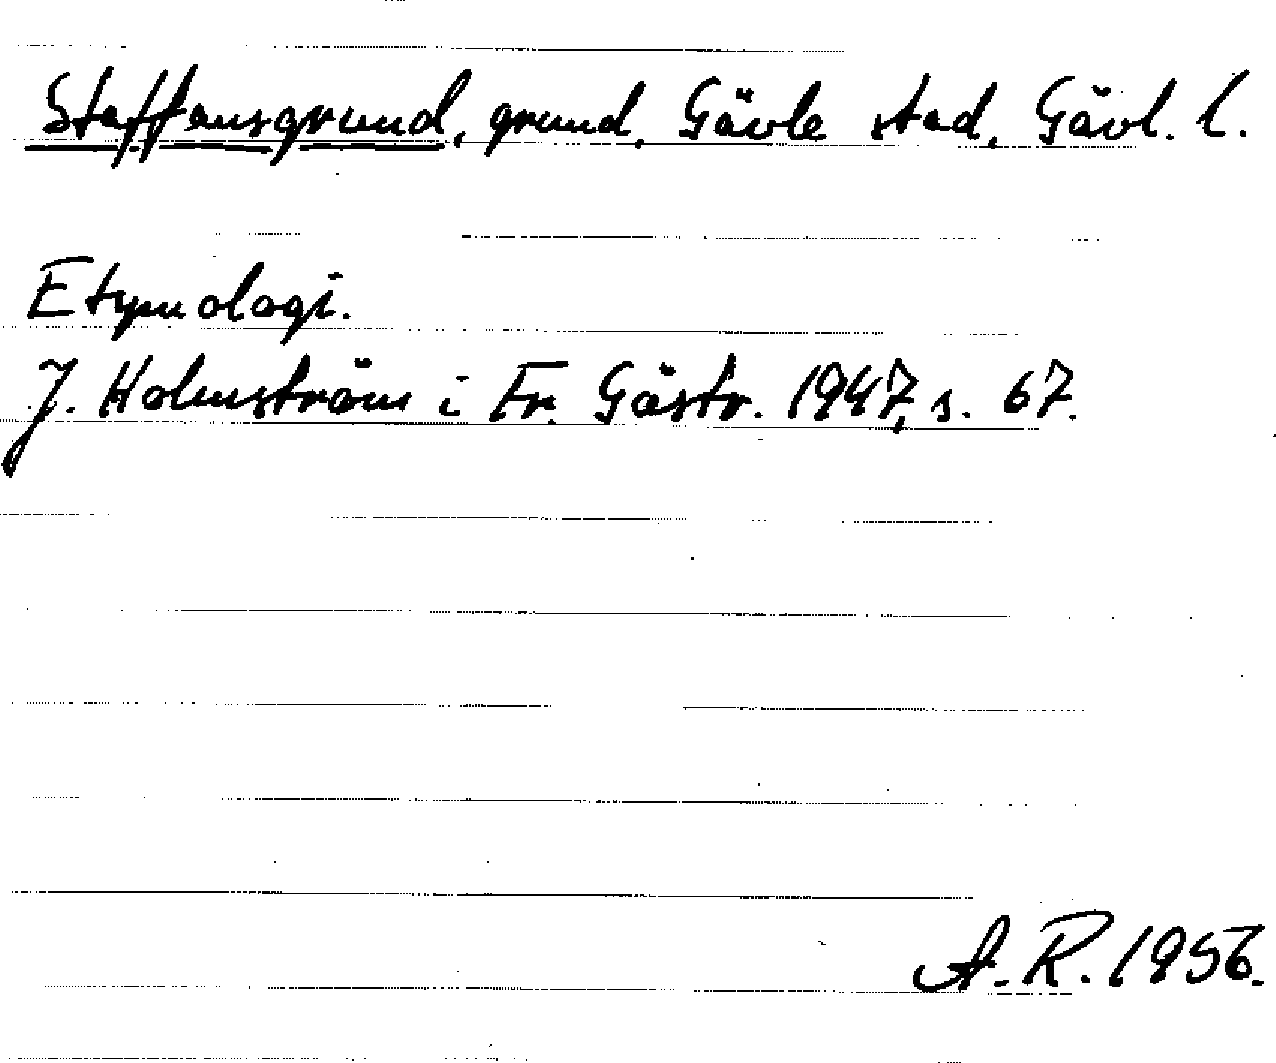 Staffansgrund, grund, Gävle stad, Gävl. l.
Etymologi.
J. Holmström i Fr. Gästr. 1947, s. 67.
A.R. 1956.